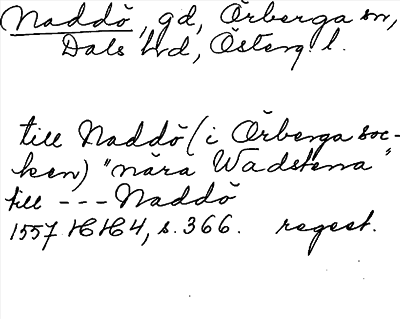 Naddö, gd, Örberga sn,
Dals hd, Österg. l.
till Naddö (i Örberga soc-
ken) "nära Wadstena"
till --- Naddö
1557 HH 4, s. 366. regest.